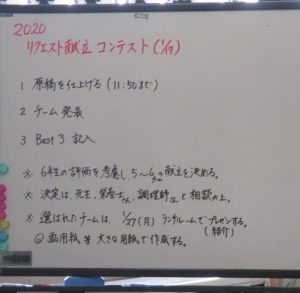 2020
リクエスト献立 コンテスト(1/17)
1 原稿を仕上げる(11:50まで)
2 チーム発表
3 Best 3 記入
※ 6年生の評価を考慮し、5〜6チームの献立を決める。
※ 決定は、先生、栄養士さん、調理師さんと相談の上。
※ 選ばれたチームは、1/27(月)ランチルームでプレゼンする。
(紹介)
◎ 画用紙等 大きな用紙で作成する。